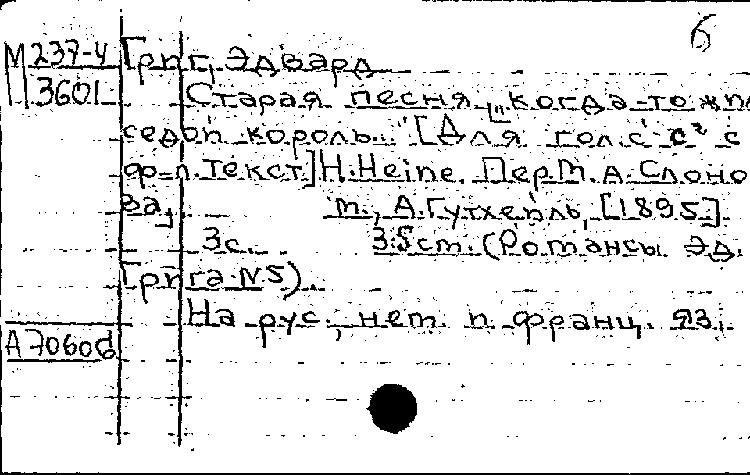 6
М 237-4 Григ, Эдвард
3601 Старая песня ["Когда-то жил
седой король..." [Для голс. c² с
ф-п. Текст] H. Heine. Пер. М. А. Слоно
ва,. м., А. Гутхейль, [1895].
3с. 35cm. (Романсы Эд.
Грига № 5).
На рус., нем. и франц. яз.
А 7060б